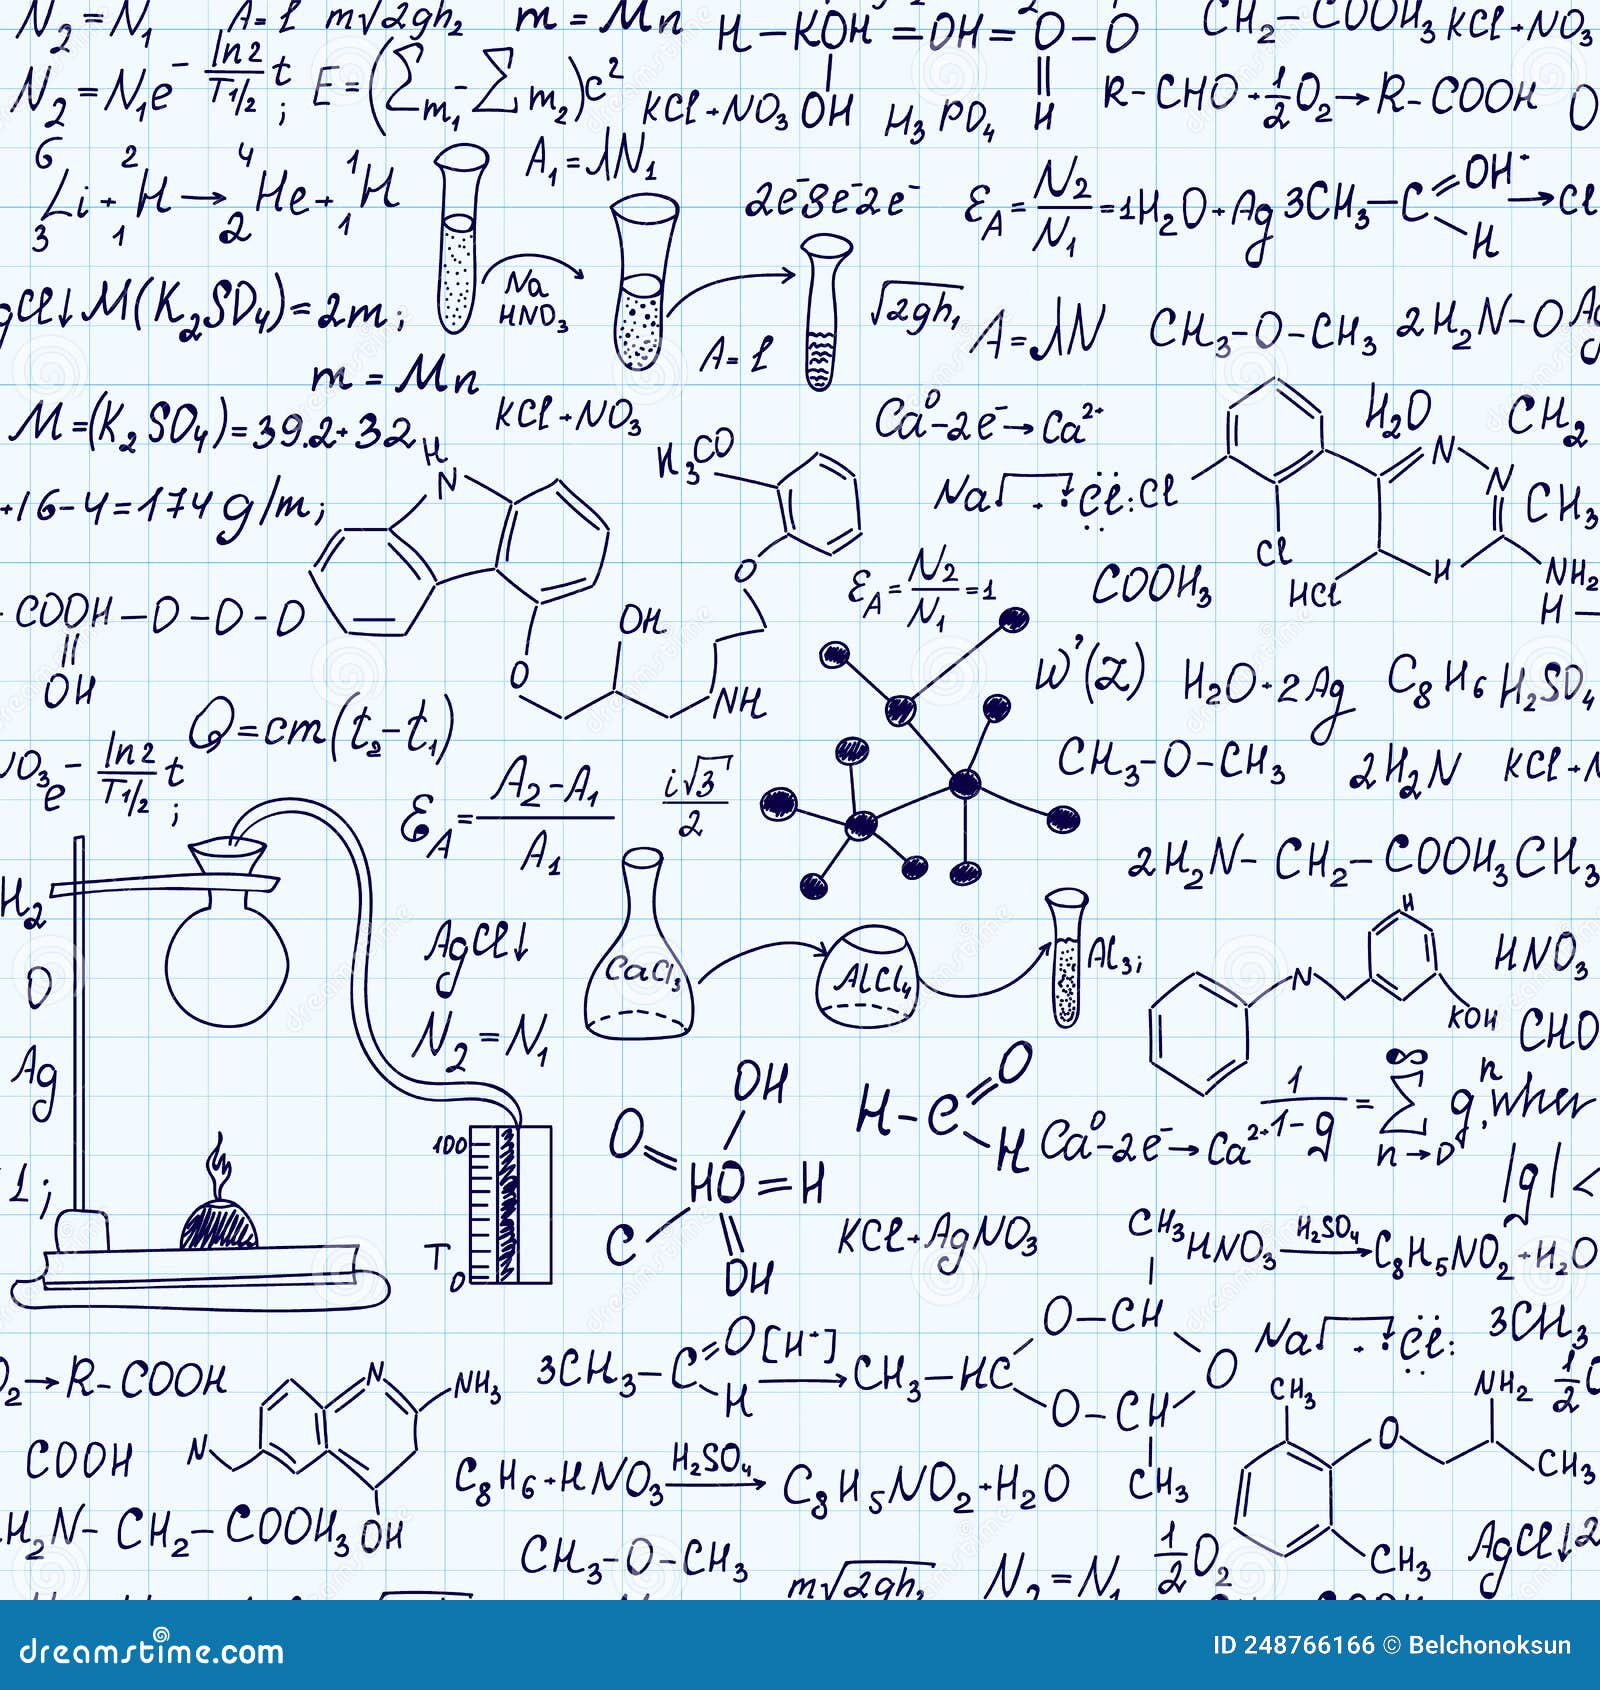 N₂=N₁ A=l m√2gh₂ m=Mn H-KOH=OH=O-O CH₂-COOH₃ KCl+NO₃
N₂=N₁e⁻ ln2/T1/2 t; E=(∑m₁-∑m₂)c² KCl+NO₃ OH H₃PO₄ H R-CHO+1/2O₂→R-COOH O
⁶₃Li+²₁H→⁴₂He+¹₁H A₁=λN₁
2e⁻8e⁻2e⁻ ℰA=N₂/N₁=1 H₂O+Ag 3CH₃-C=OH⁺ →Cl
H
gCl↓ M(K₂SO₄)=2m; Na
HNO₃ A=l √2gh₁ A=λN CH₃-O-CH₃ 2H₂N-O Ag
m=Mn
M=(K₂SO₄)=39.2+32 KCl+NO₃ Ca⁰-2e⁻→Ca²⁺ H₂O CH₂
+16-4=174 g/m; H N H₃CO Na Cl: Cl N N CH₃
Cl HCl H NH₂
O ℰA=N₂/N₁=1 COOH₃ H-
COOH-O-O-O OH
OH O NH W'(Z) H₂O+2Ag C₈H₆ H₂SO₄
Q=cm(t₂-t₁)
NO₃ e- ln2/T1/2 t; CH₃-O-CH₃ 2H₂N KCl+N
ℰA=A₂-A₁/A₁ i√3/2
2H₂N-CH₂-COOH₃ CH₃
H₂ AgCl↓ CaCl₃ AlCl₄ Al₃; H N KOH HNO₃
O N₂=N₁ CHO
Ag OH O H-C=O H 1/1-g=∞∑n→0 gⁿ, wher
100 HO=H Ca⁰-2e⁻→Ca²⁺
L; C |g|<
T OH KCl+AgNO₃ CH₃ HNO₃ H₂SO₄→C₈H₅NO₂+H₂O
0
O₂→R-COOH N NH₃ 3CH₃-C=O H [H⁺]→CH₃-HC O-CH O O-CH CH₃ Na Cl: 3CH₃
CH₃ NH₂ 1/2O
COOH N C₈H₆+HNO₃ H₂SO₄→C₈H₅NO₂+H₂O O CH₃
H₂N-CH₂-COOH₃ OH CH₃-O-CH₃ 1/2O₂ CH₃ AgCl↓2
m√2gh₂ N₂=N₁
dreamstime.com
ID 248766166 © Belchonoksun